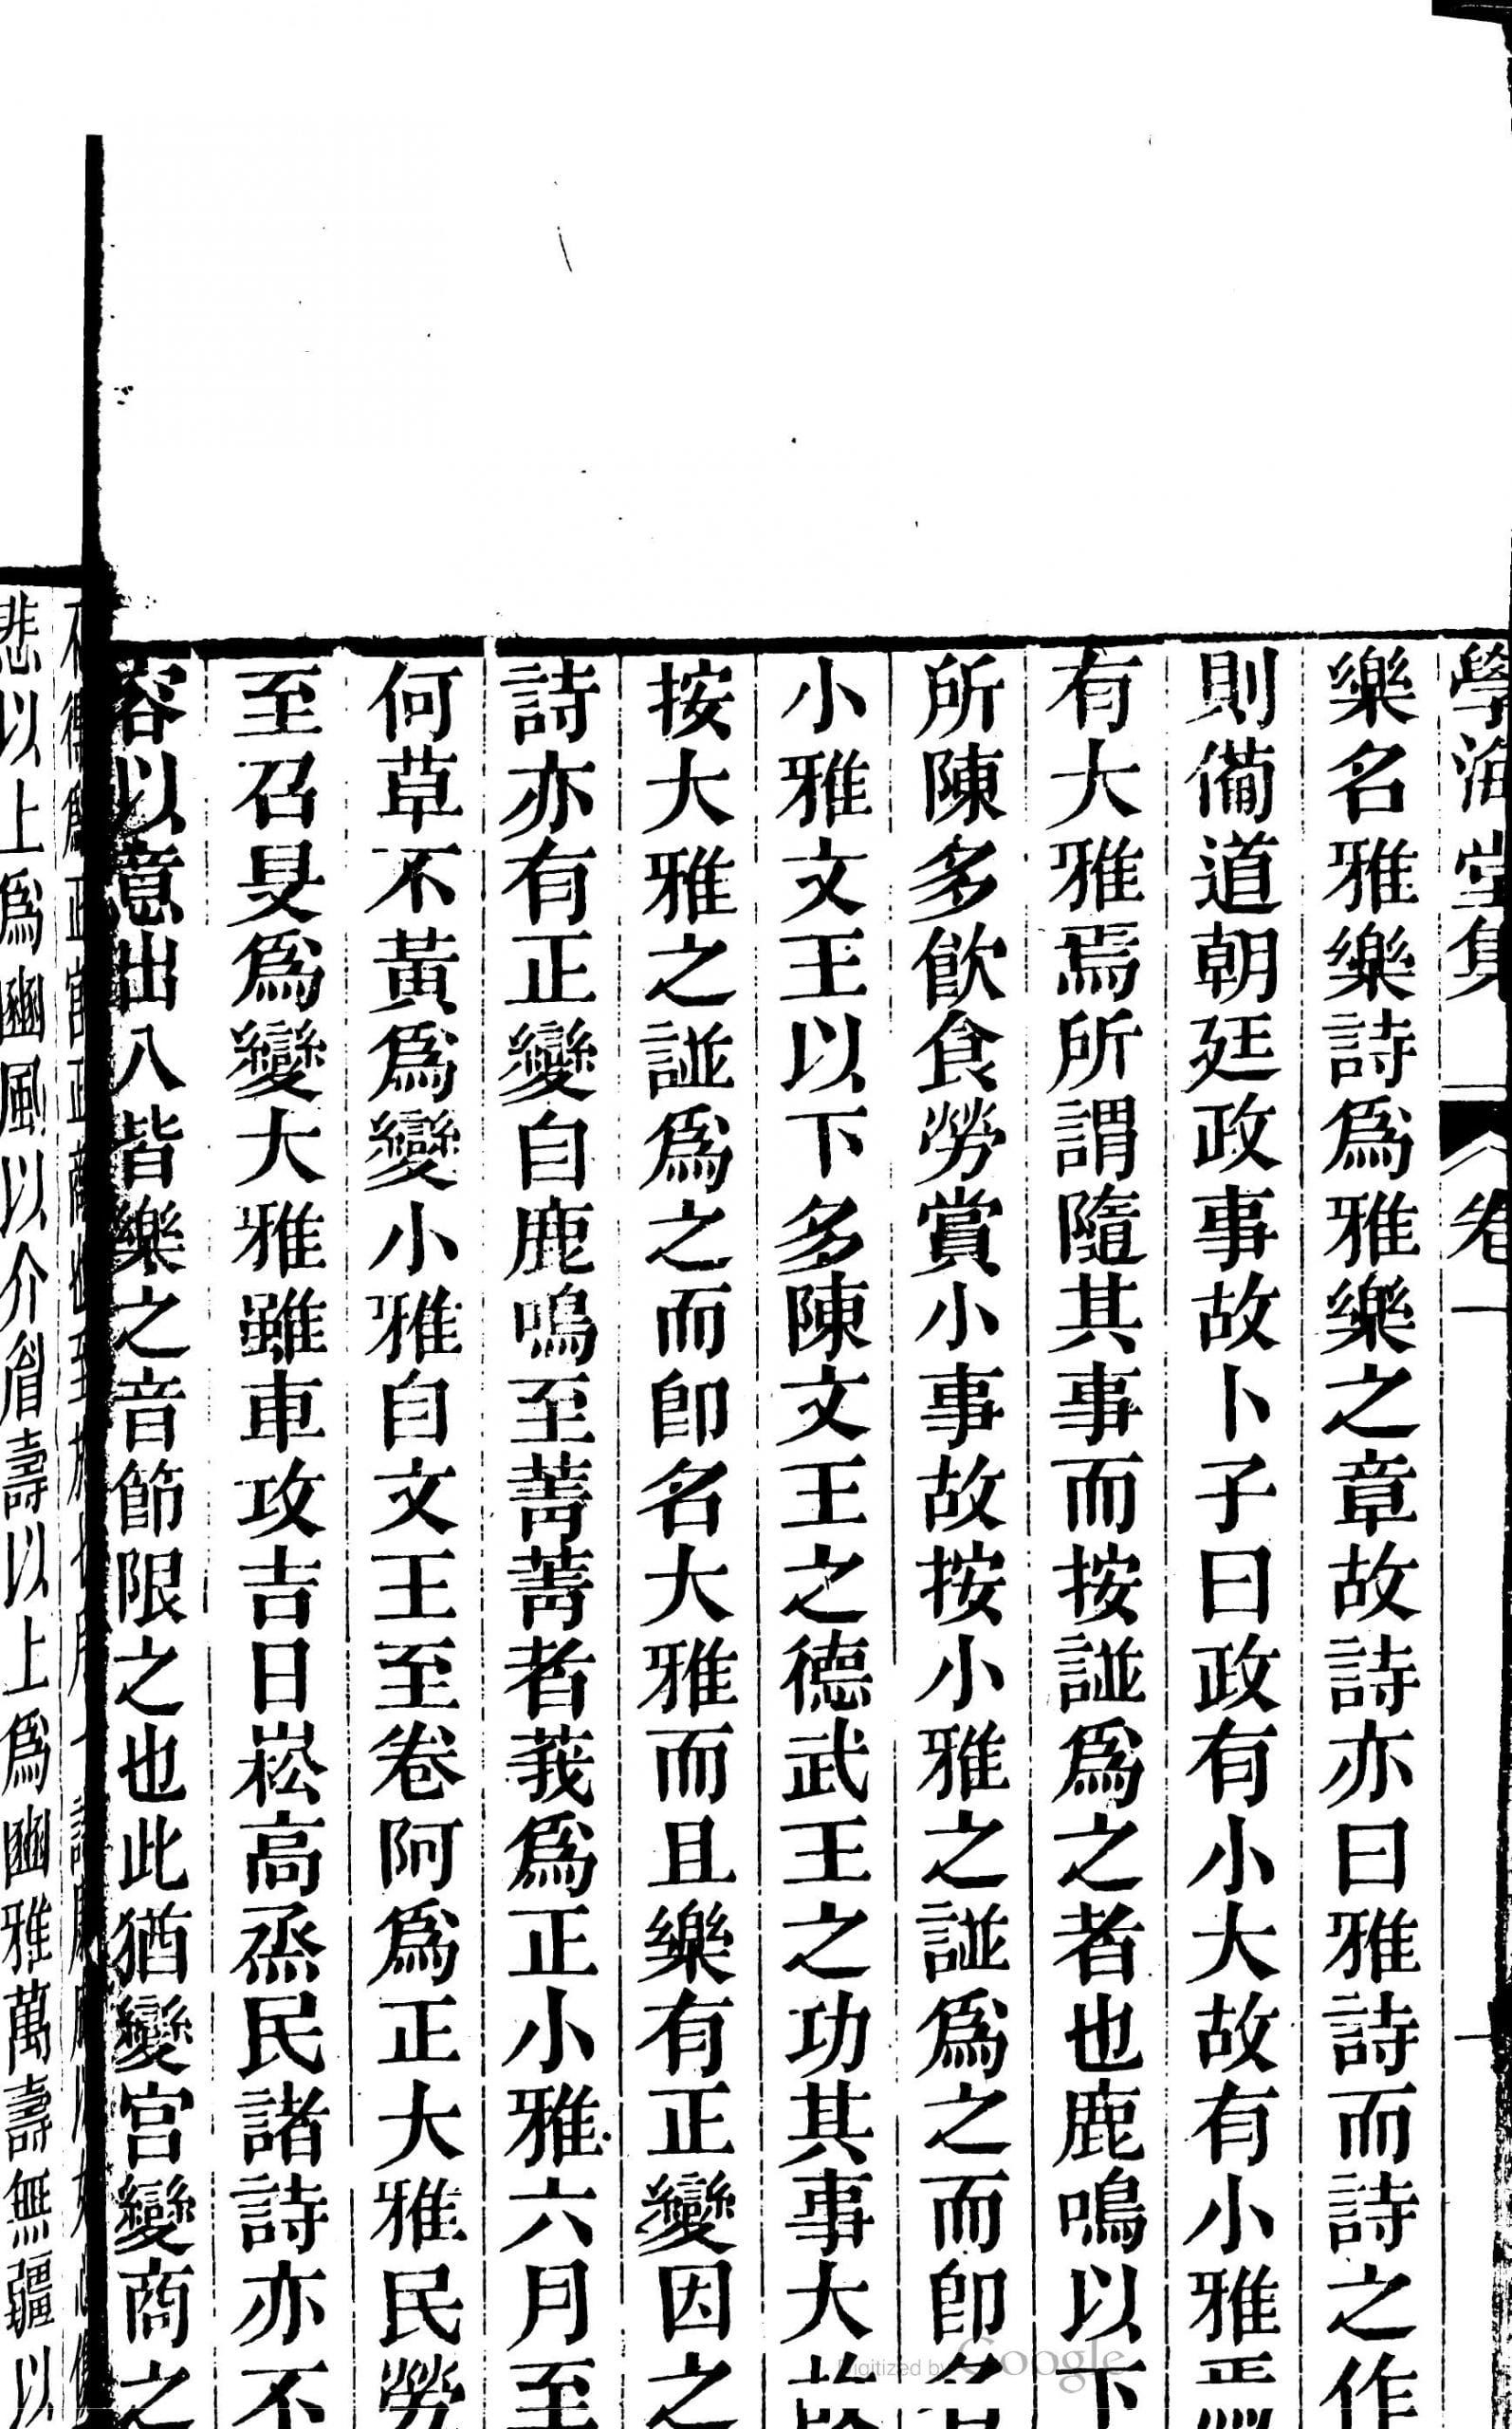 學海堂集
卷一
樂名雅樂詩爲雅樂之章故詩亦曰雅詩而詩之作
則備道朝廷政事故卜子曰政有小大故有小雅焉
有大雅焉所謂隨其事而按譜爲之者也鹿鳴以下
所陳多飮食勞賞小事故按小雅之譜爲之而卽名
小雅文王以下多陳文王之德武王之功其事大故
按大雅之譜爲之而卽名大雅而且樂有正變因之
詩亦有正變自鹿鳴至菁菁者莪爲正小雅六月至
何草不黃爲變小雅自文王至卷阿爲正大雅民勞
至召旻爲變大雅雖車攻吉日崧高烝民諸詩亦不
容以意出入皆樂之音節限之也此猶變宮變商之
悲以上爲豳風以介眉壽以上爲豳雅萬壽無疆以
Digitized by Google